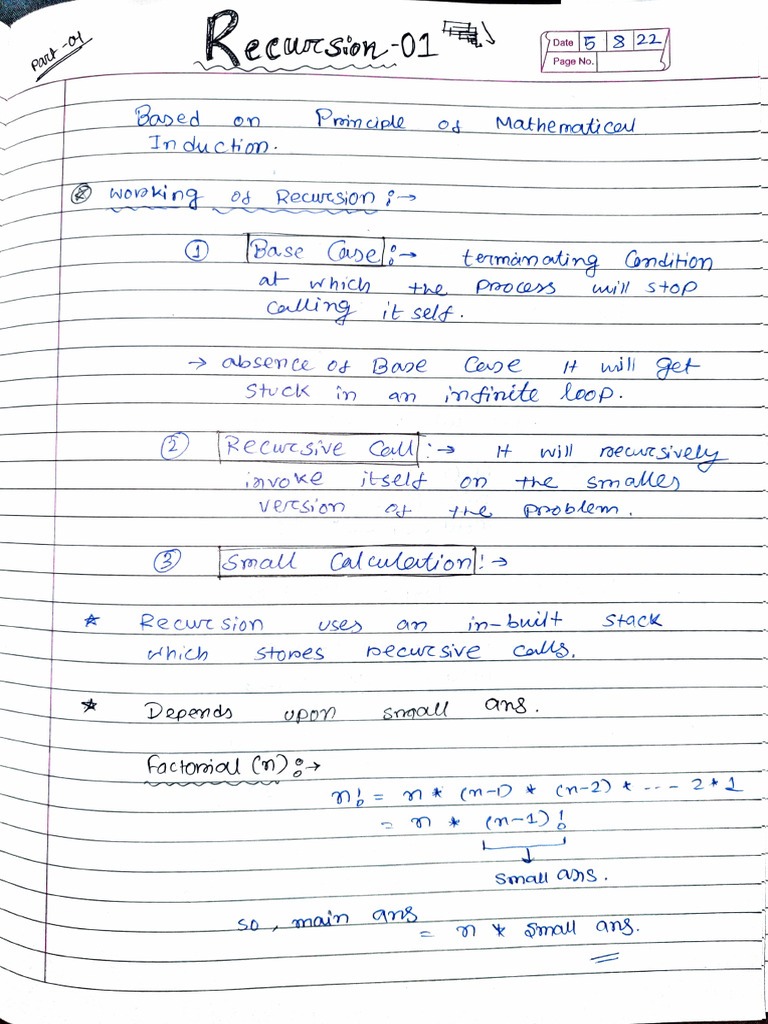 Part-01
Recursion-01
Date 5 8 22
Page No.
Based on Principle of Mathematical
Induction.
Working of Recursion :→
① Base Case :→ terminating Condition
at which the process will stop
calling itself.
→ absence of Base Case It will get
stuck in an infinite loop.
② Recursive Call :→ It will recursively
invoke itself on the smaller
version of the problem.
③ Small Calculation :→
* Recursion uses an in-built stack
which stores recursive calls.
* Depends upon small ans.
Factorial (n) :→
n! = n * (n-1) * (n-2) * --- 2*1
= n * (n-1)!
small ans.
so, main ans
= n * small ans.